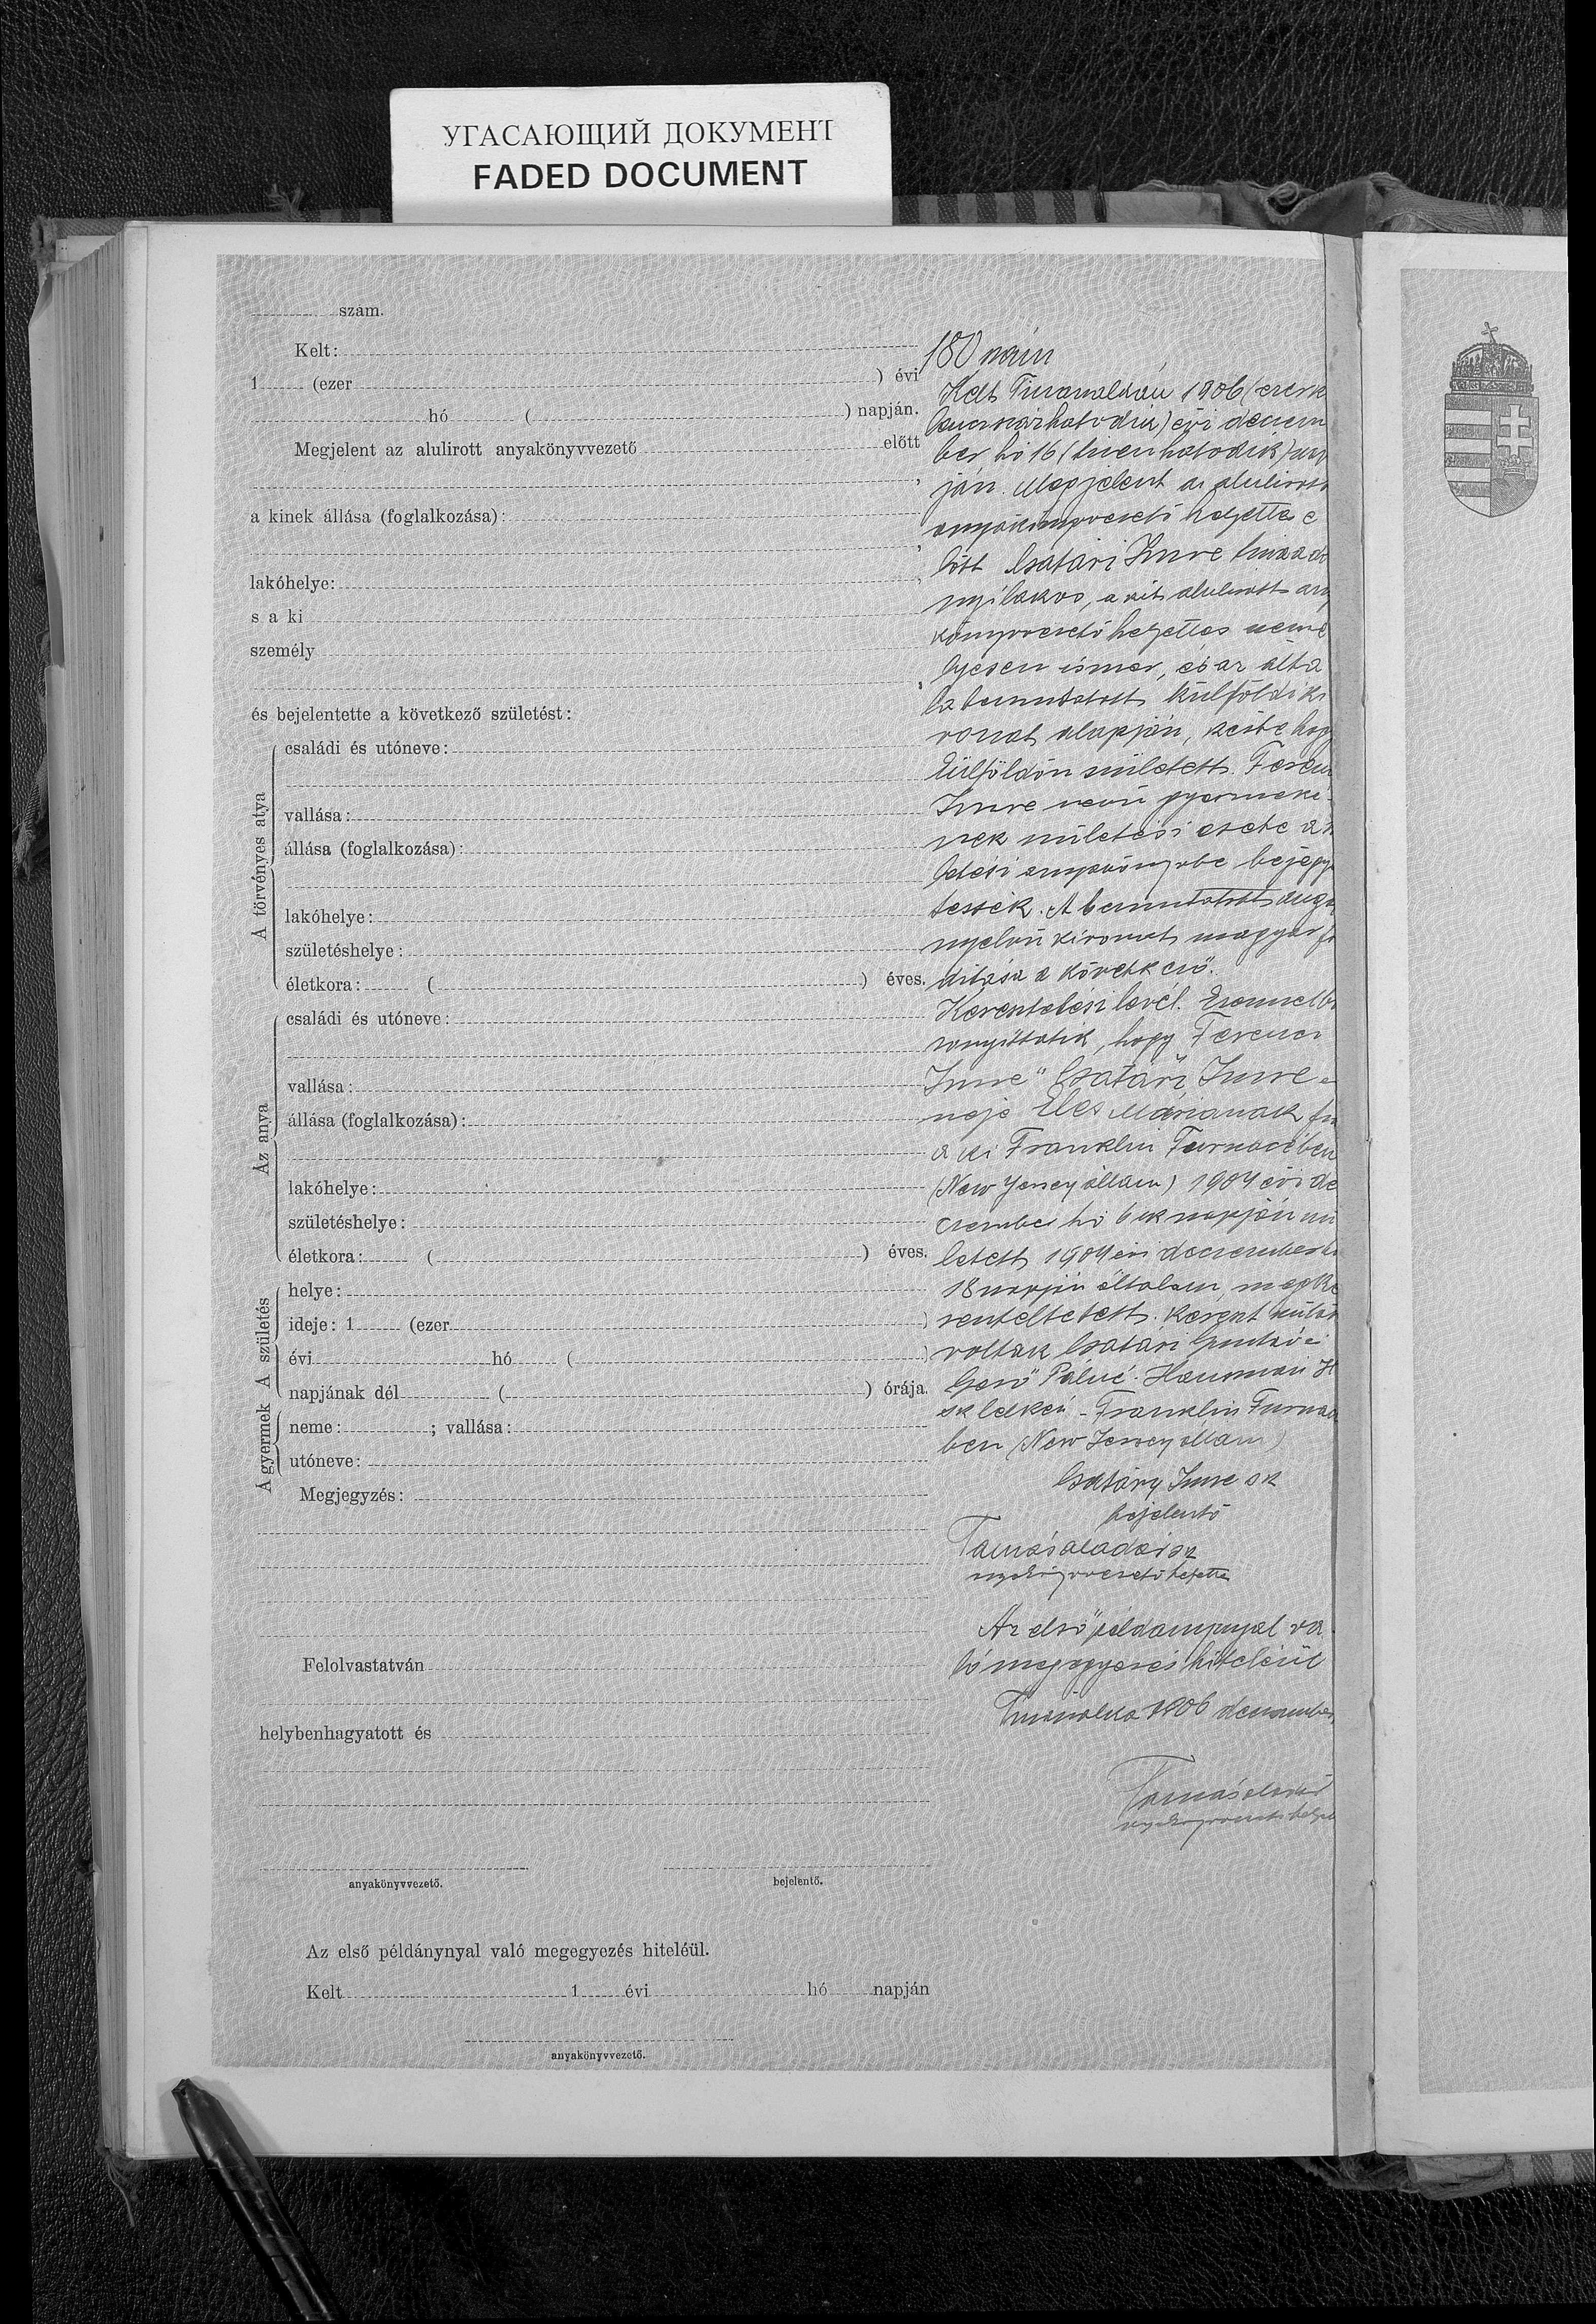 УГАСАЮЩИЙ ДОКУМЕНТ
FADED DOCUMENT
szám.
Kelt:
1 (ezer ) évi
hó ( ) napján.
Megjelent az alulirott anyakönyvvezető előtt
,
a kinek állása (foglalkozása):
,
lakóhelye: ,
s a ki
személy
,
és bejelentette a következő születést:
A törvényes atya
családi és utóneve:
vallása:
állása (foglalkozása):
lakóhelye:
születéshelye:
életkora: ( ) éves.
Az anya
családi és utóneve:
vallása:
állása (foglalkozása):
lakóhelye:
születéshelye:
életkora: ( ) éves.
A születés
helye:
ideje: 1 (ezer )
évi hó ( )
napjának dél ( ) órája.
A gyermek
neme: ; vallása:
utóneve:
Megjegyzés:
Felolvastatván
helybenhagyatott és
anyakönyvvezető. bejelentő.
Az első példánynyal való megegyezés hiteléül.
Kelt 1 évi hó napján
anyakönyvvezető.
180 szám
Kelt 1906 (ezerk
) évi decem
ber hó 16 (tizenhatodik) nap
ján. Megjelent az alulirott
anyakönyvvezető helyettes e
lőtt Csatári Imre
lakos, a kit alulirott any
könyvvezető helyettes szemé
lyesen ismer, és az álta
la bemutatott külföldi ki
vonat alapján, kérte hogy
külföldön született Ferencz
Imre nevü gyermeké-
nek születési esete a sz
letési anyakönyvbe bejegy
tessék. A bemutatott ango
nyelvü kivonat magyar fo
ditása a következő.
Keresztelési levél. Ezennel bi
zonyittatik, hogy Ferencz
Imre" Csatári Imre
neje Éles Máriának fi
a ki Franklin Furnaceben
(New Jersey állam) 1904 évi de
czember hó 6ik napján szü
letett 1904 évi deczember h
18 napján általam megke
reszteltetett. Kereszt szülői
voltak Csatári
Gerő Pálné. Hausman H
sk lelkész - Franklin Furnace
ben (New Jersey állam)
Csatáry Imre sk
bejelentő
Tamás Aladár sk
anyakönyvvezető helyettes
Az első példánynyal va
ló megegyezés hiteléül
1906 deczember
Tamás Aladár
anyakönyvvezető helyett